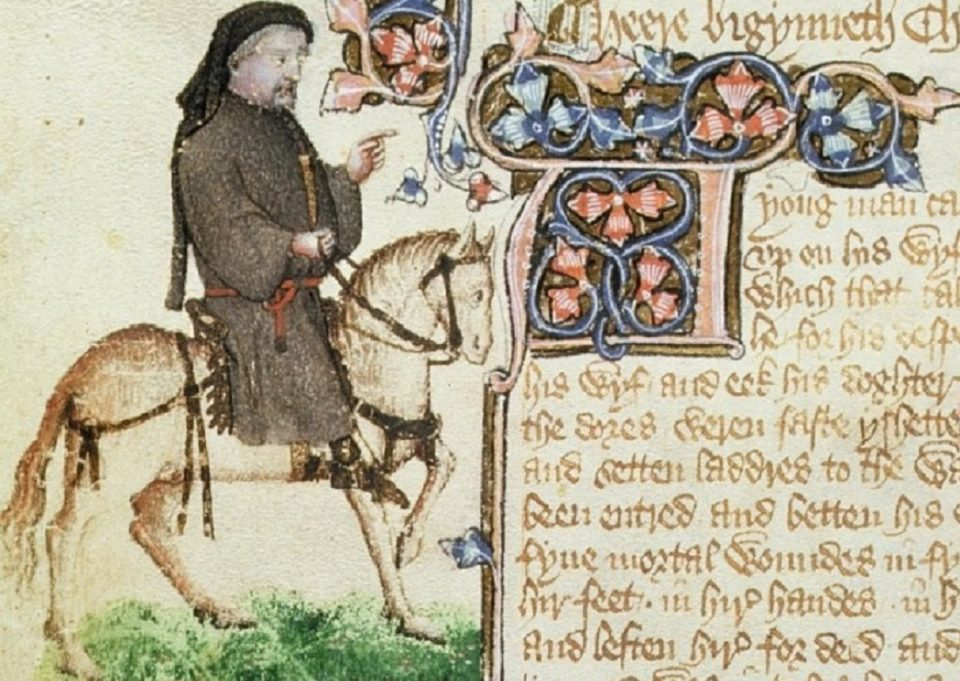 Heere bigynneth Ch
yong man ca
vp on his wyf
which that cal
he for his despo
his wyf and eek his doghter
the dores weren faste yshette
and setten laddres to the wa
been entred and betten his
fyue mortal woundes in
hir feet in hir handes in h
and leften hir for deed and